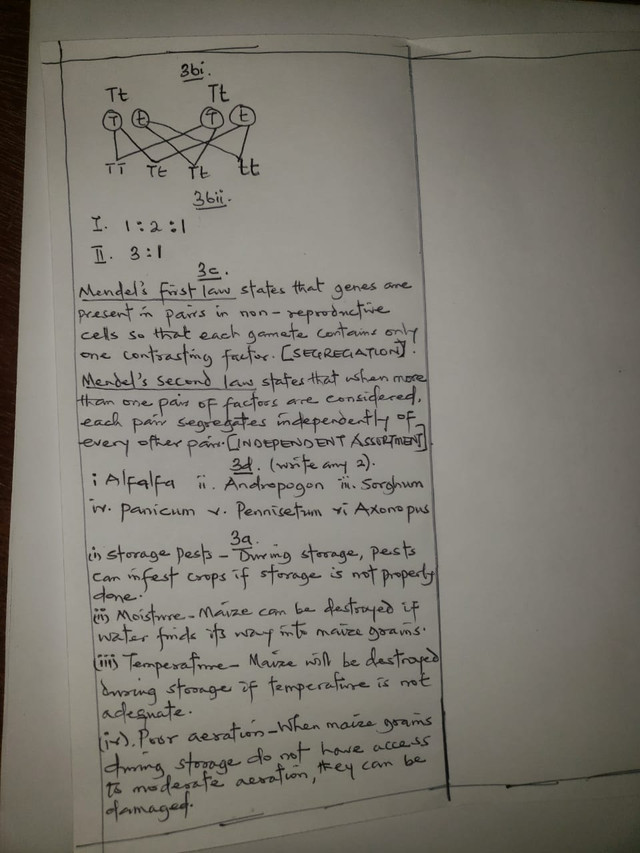 3bi.
Tt Tt
T t T t
TT Tt Tt tt
3bii.
I. 1:2:1
II. 3:1
3c.
Mendel's first law states that genes are
present in pairs in non-reproductive
cells so that each gamete contains only
one contrasting factor. [SEGREGATION].
Mendel's second law states that when more
than one pair of factors are considered,
each pair segregates independently of
every other pair. [INDEPENDENT ASSORTMENT].
3d. (write any 2).
i Alfalfa ii. Andropogon iii. Sorghum
iv. Panicum v. Pennisetum vi Axonopus
3a.
(i) Storage pests - During storage, pests
can infest crops if storage is not properly
done.
(ii) Moisture - Maize can be destroyed if
water finds its way into maize grains.
(iii) Temperature - Maize will be destroyed
during storage if temperature is not
adequate.
(iv). Poor aeration - When maize grains
during storage do not have access
to moderate aeration, they can be
damaged.